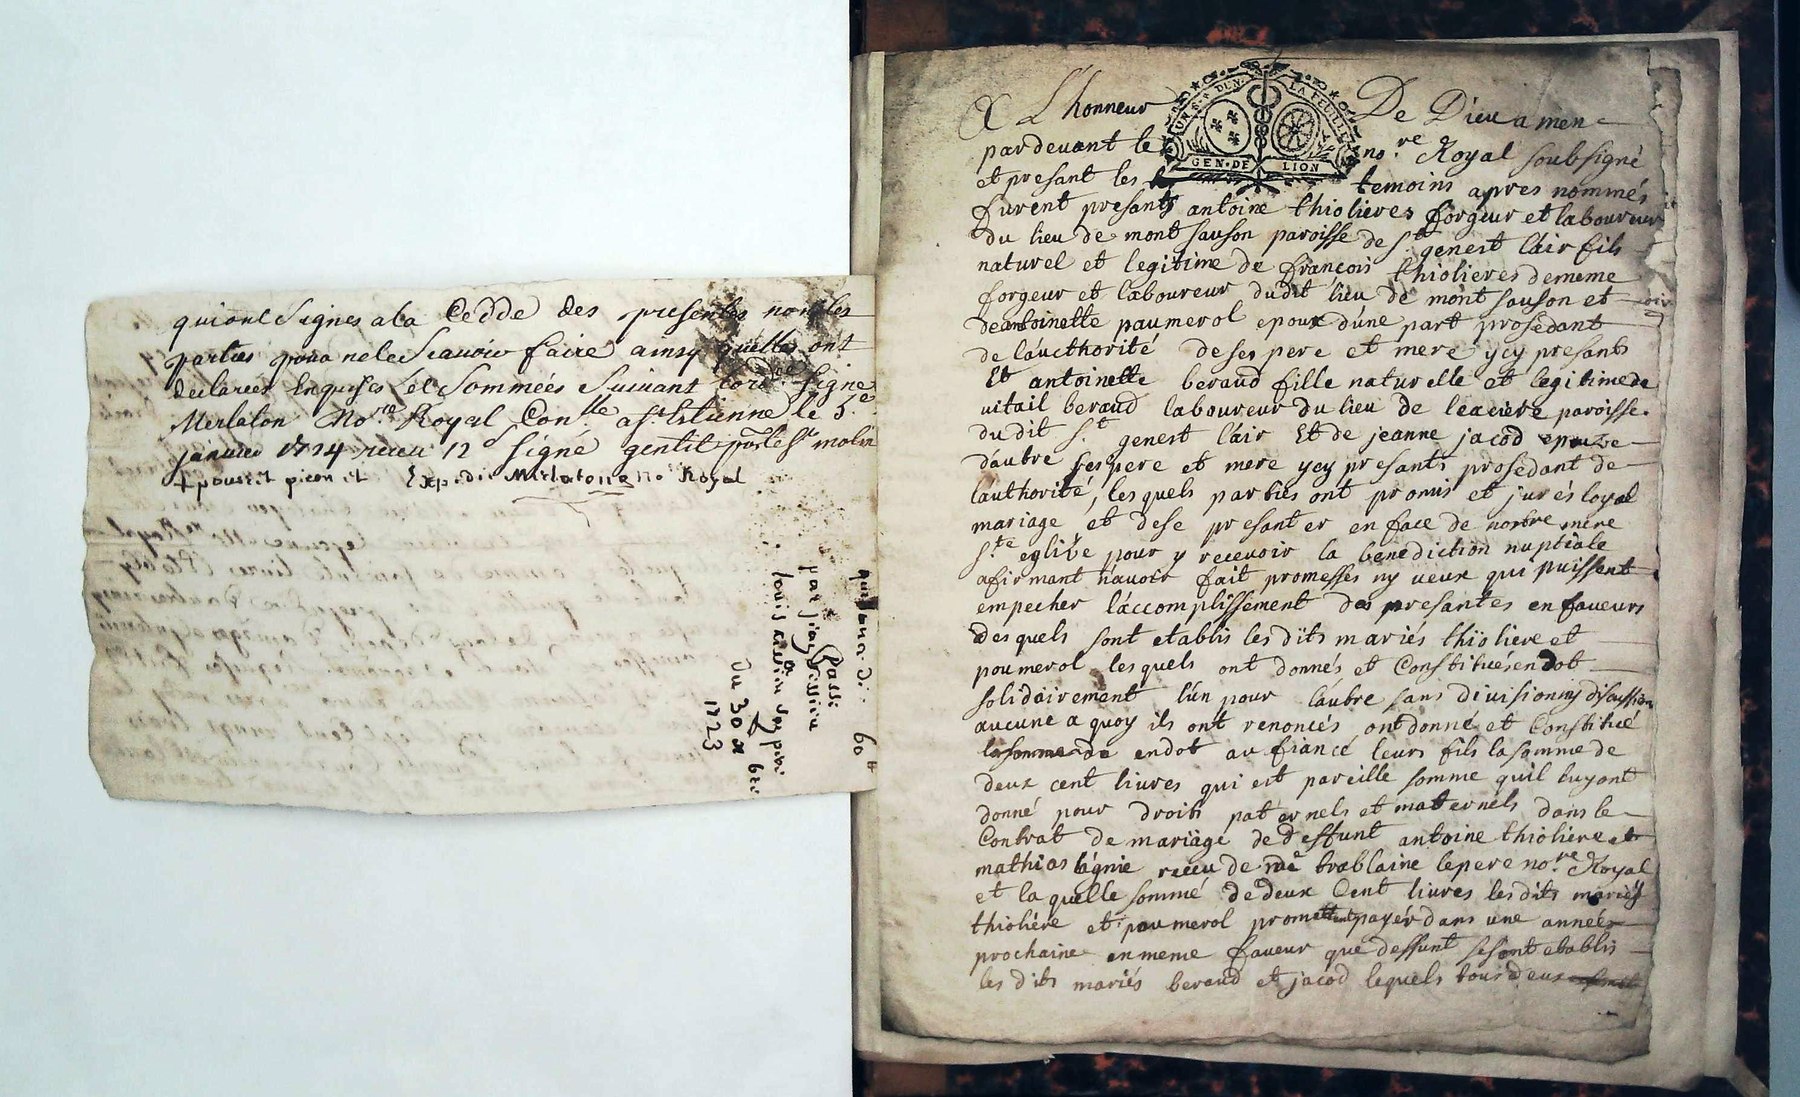 quiont Signes a la Cedde des presentes non les
parties pour ne le Scavoir faire ainsy quelles ont
declarees Enquises et Sommées Suivant lord.ce Signe
Merlaton No.re Royal Con.lle a St Etienne le 3.e
janvier 1724 receu 12 s Signé gentit pour le Sr molin
Expedie Merlaton no.re Royal
quittance di 60 tt
Passé
par
louis
Du 30 8bre
1723
A L'honneur De Dieu amen
UN S. * DEN. LA FEUILLE
GEN. DE LION
pardevant le no.re Royal soubsigné
et presant les temoins apres nommés
furent presants antoine thiolieres forgeur et laboureur
du lieu de mont sauson paroisse de S.t genest l'air fils
naturel et legitime de françois thiolieres de meme
forgeur et laboureur dudit lieu de mont sauson et
de antoinette paumerol epoux d'une part prosedant
de l'aucthorité de ses pere et mere ycy presants
Et antoinette beraud fille naturelle et legitime de
vitail beraud laboureur du lieu de leaciere paroisse
du dit S.t genest l'air Et de jeanne jacod epouze
d'autre ses pere et mere ycy presants prosedant de
lauthorité, lesquels parties ont promis et jurés loyal
mariage et de se presanter en face de nostre mere
S.te eglise pour y recevoir la benediction nuptiale
afirmant n'avoir fait promesses ny veux qui puissent
empecher l'accomplissement des presantes en faveurs
desquels sont etablis les dits mariés thioliere et
poumerol lesquels ont donnés et Constitués en dot
solidairement l'un pour l'autre sans division ny discussion
aucune a quoy ils ont renoncés ont donné et Constitué
la somme de en dot au fiancé leurs fils la somme de
deux cent livres qui est pareille somme quil luy ont
donné pour droits paternels et maternels dans le
Contrat de mariage de deffunt antoine thioliere et
mathias lagnie receu de me trablaine le pere no.re Royal
et la quelle sommé de deux Cent livres les dits mariés
thiolière et paumerol promettent payér dans une année
prochaine en meme faveur que dessunt se sont etablis
les dits mariés beraud et jacod lequels tous deux